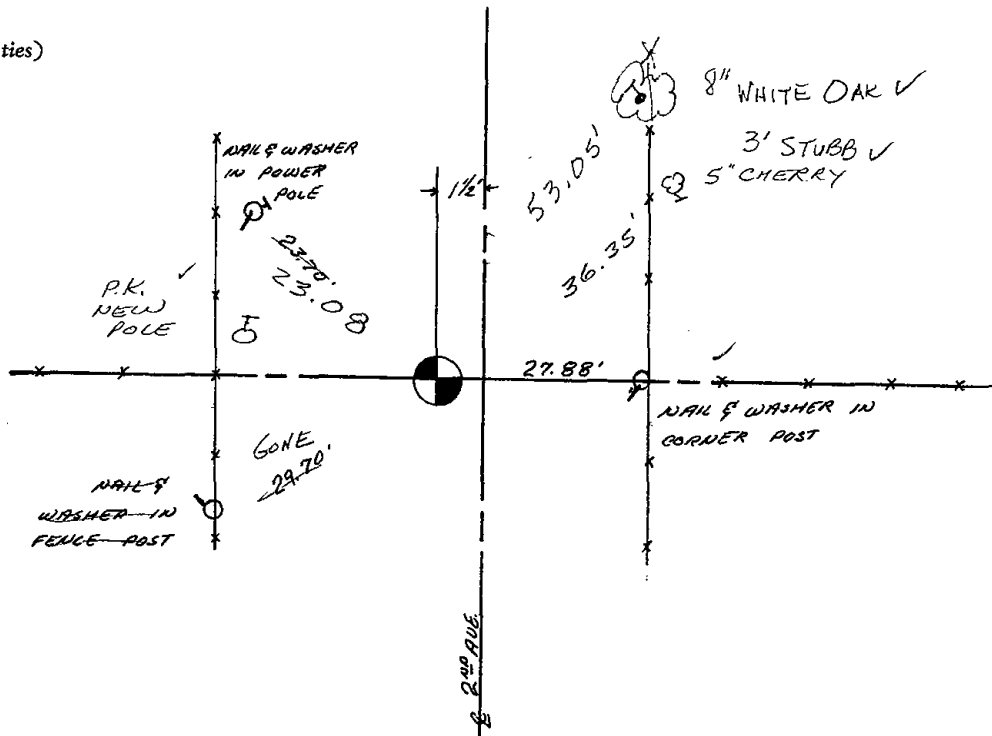 ties)
8" WHITE OAK ✓
3' STUBB ✓
5" CHERRY
NAIL & WASHER
IN POWER
POLE
1½'
53.05'
36.35'
23.70'
23.08
P.K. ✓
NEW
POLE
27.88'
✓
NAIL & WASHER IN
CORNER POST
GONE
29.70'
NAIL &
WASHER IN
FENCE POST
℄ 2ND AVE.